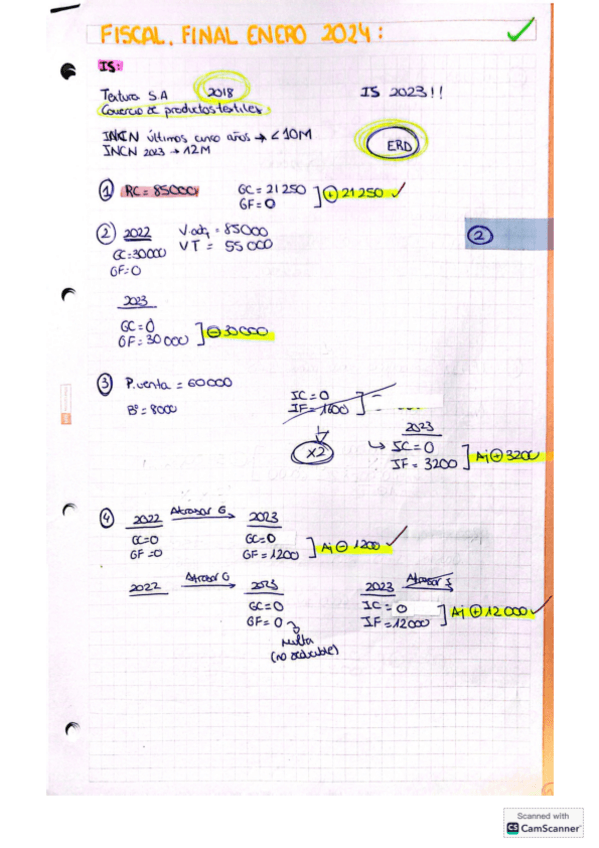 FISCAL. FINAL ENERO 2024:
IS:
Textura S.A 2018 IS 2023!!
Comercio de productos textiles.
INCN últimos cinco años → < 10M
INCN 2023 → 12M
ERD
① RC = 85000 GC = 21250
GF = 0 ⊕ 21250
② 2022 V.adq = 85000
GC = 30000 VT = 55000
GF = 0
2
2023
GC = 0
GF = 30000 ⊖ 30000
③ P.venta = 60000
Bº = 8000
IC = 0
IF = 1600
x2
2023
IC = 0
IF = 3200 Aj ⊕ 3200
④ 2022 Atrasar G 2023
GC=0 GC=0
GF=0 GF=1200 Aj ⊖ 1200
2022 Atrasar G 2023 2023 Atrasar I
GC=0 IC = 0
GF=0 IF = 12000 Aj ⊕ 12000
Multa
(no deducible)
Scanned with
CS CamScanner